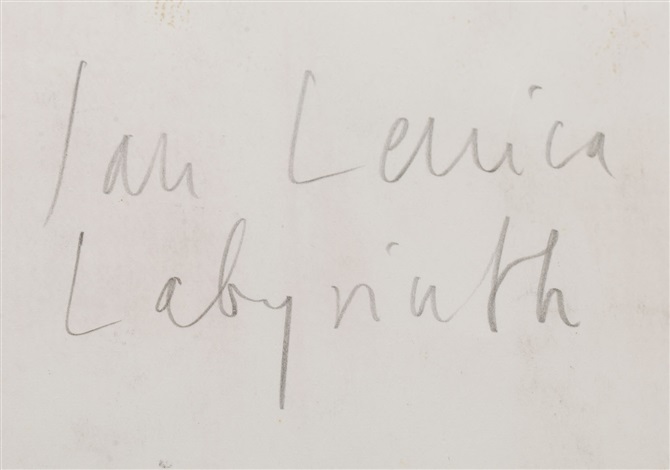 Jan Lenica
Labyrinth